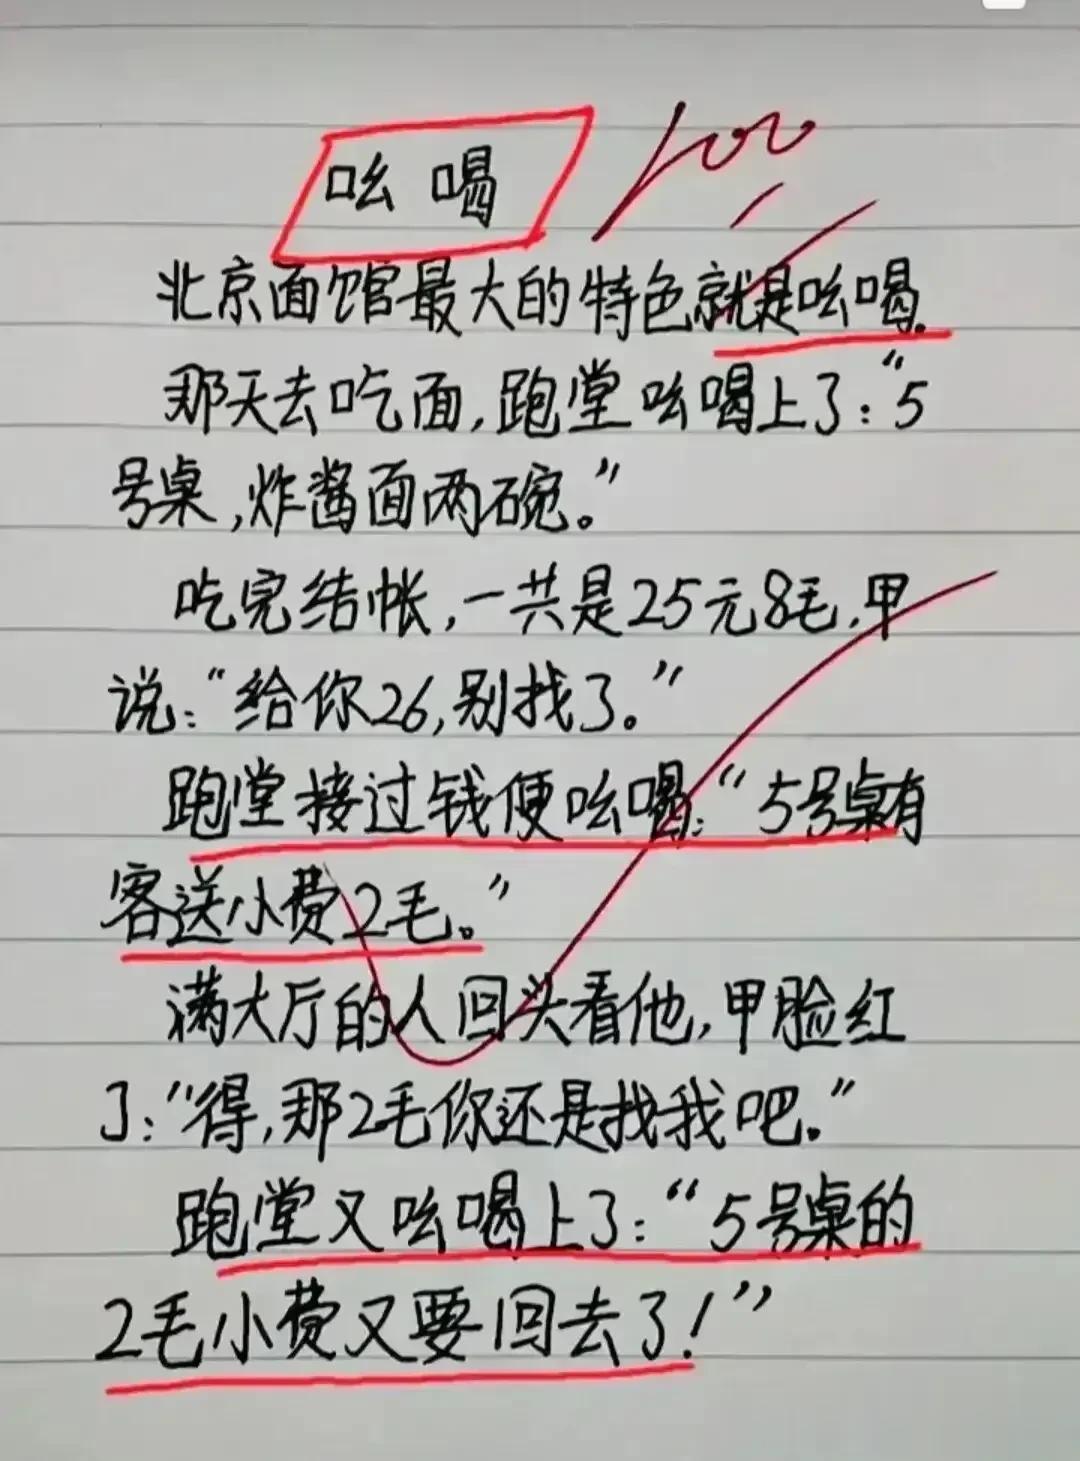 吆喝
100
北京面馆最大的特色就是吆喝。
那天去吃面,跑堂吆喝上了:“5
号桌,炸酱面两碗。”
吃完结帐,一共是25元8毛,甲
说:“给你26,别找了。”
跑堂接过钱便吆喝:“5号桌有
客送小费2毛。”
满大厅的人回头看他,甲脸红
了:“得,那2毛你还是找我吧。”
跑堂又吆喝上了:“5号桌的
2毛小费又要回去了!”